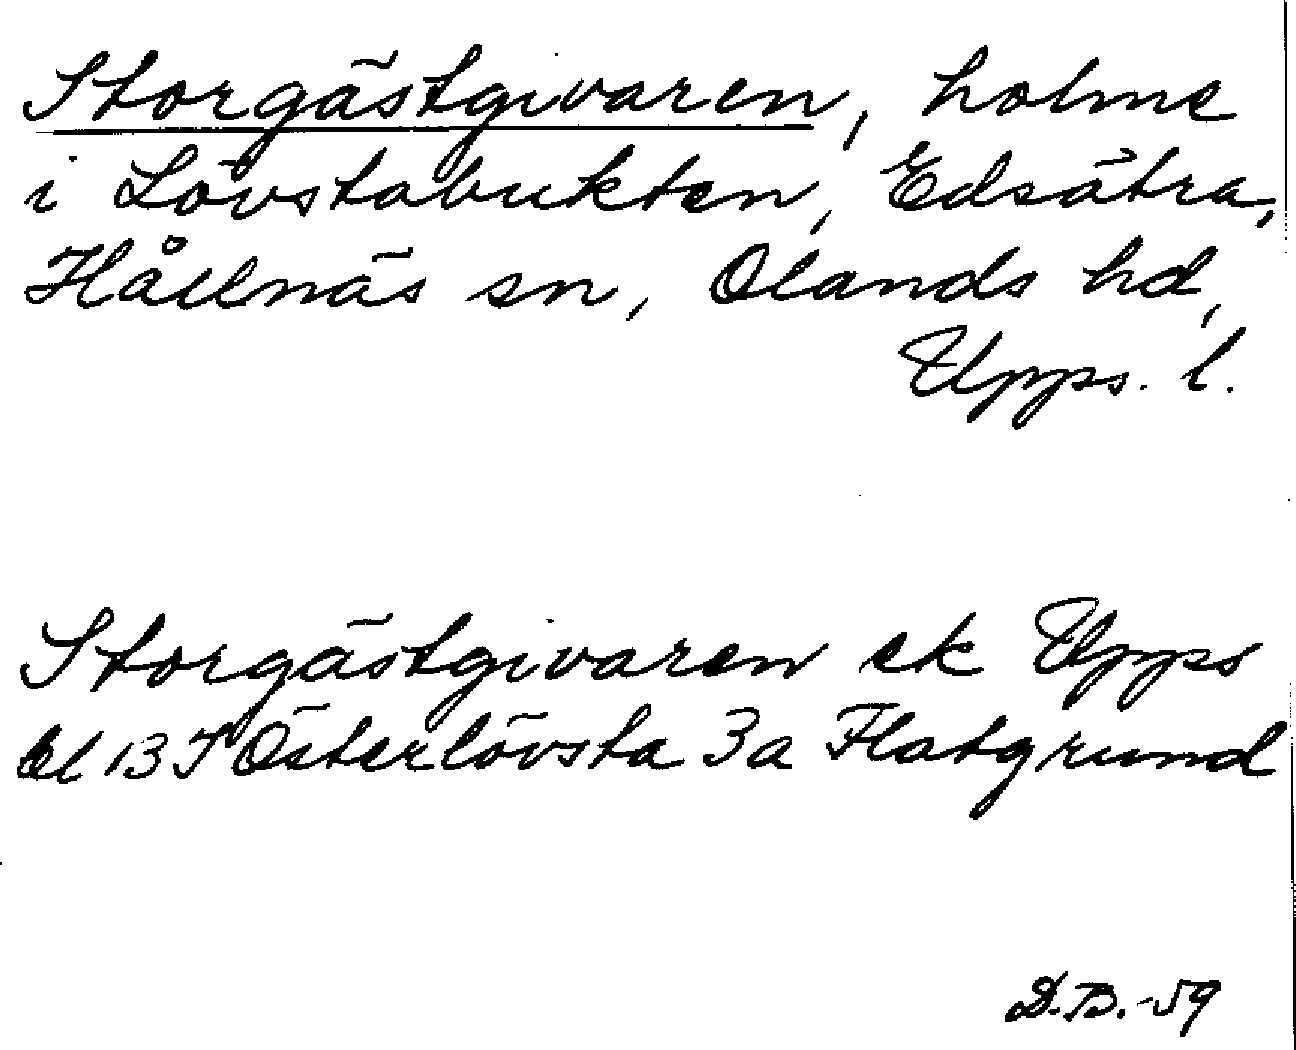 Storgästgivaren, holme
i Lövstabukten, Edsätra,
Hållnäs sn, Olands hd,
Upps. l.
Storgästgivaren ek Upps
bl 13 T Österlövsta 3a Flatgrund
D.B.-59